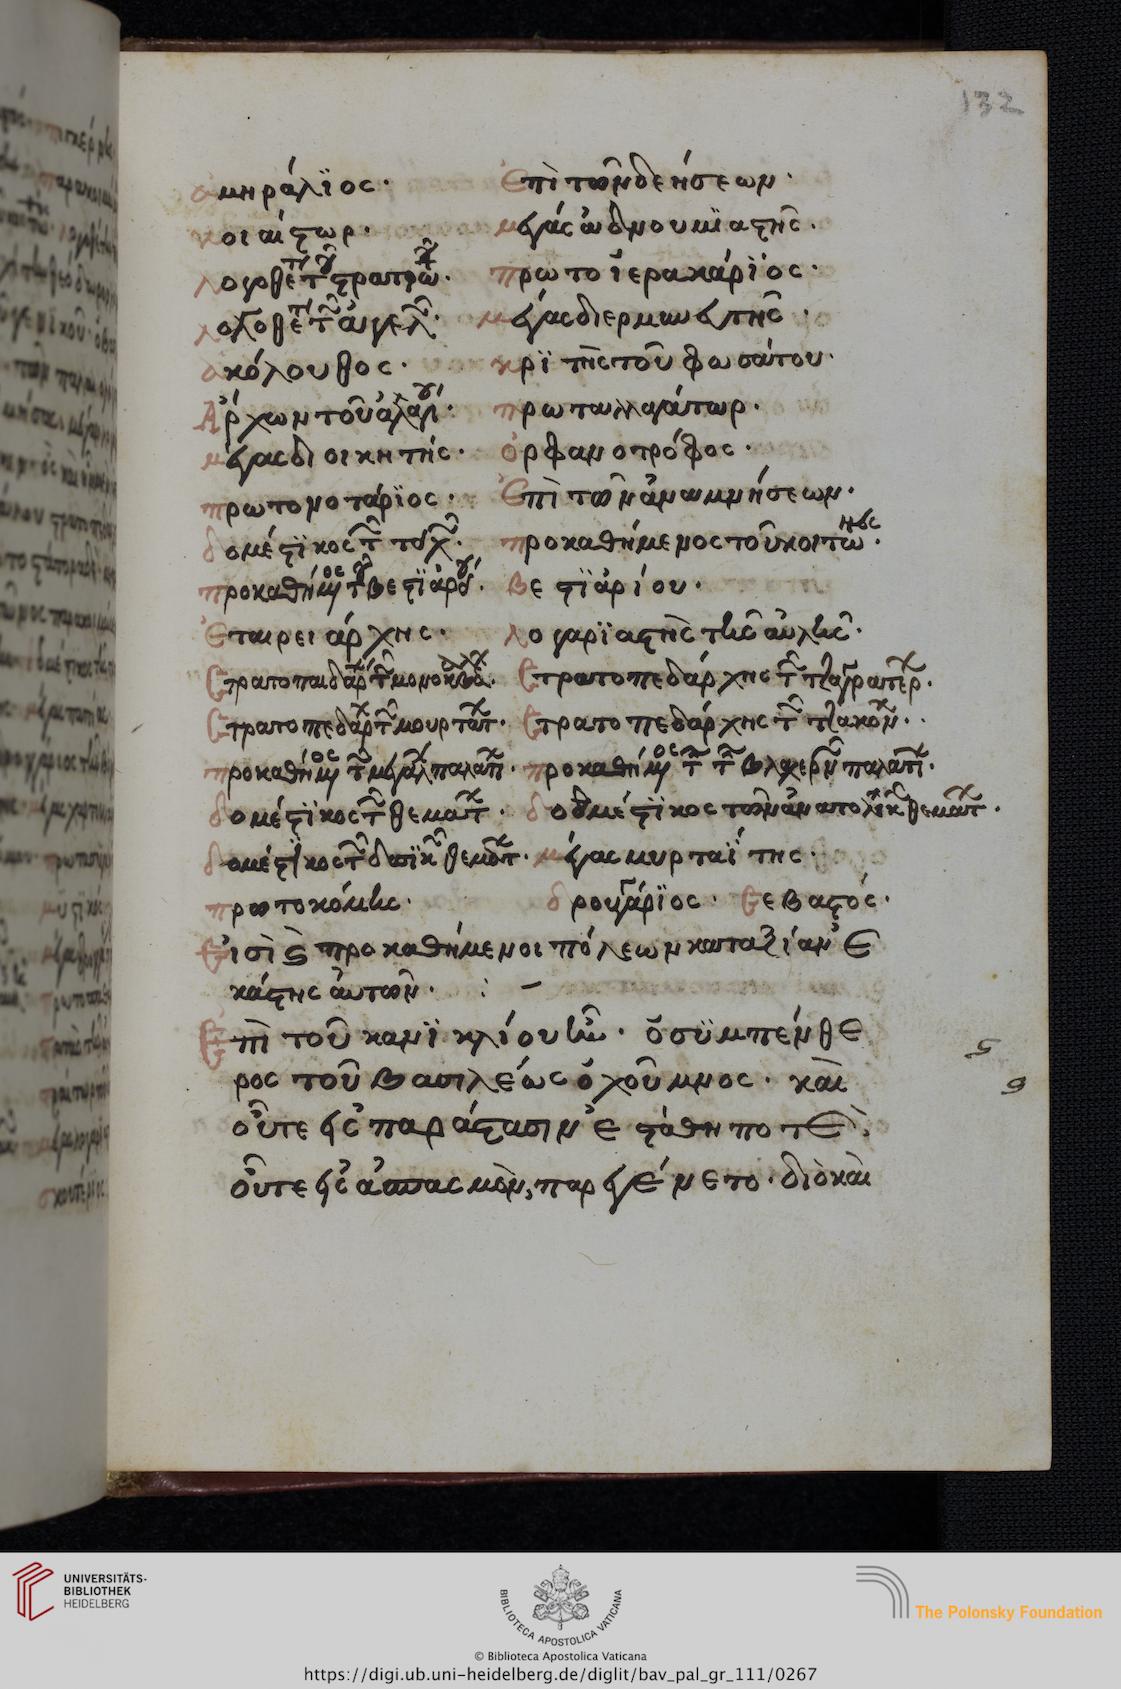 132
ἀμηράλϊος· Ἐπὶ τῶν δεήσεων·
κοιαίστωρ· μέγας ἀδνουμϊαστής·
λογοθέτ τ στρατιω· πρωτοϊερακάρϊος·
λογοθέτ τ ἀγελ· μέγας διερμηνευτής·
ἀκόλουθος· κρϊτὴς τοῦ φωσάτου·
Ἄρχων τοῦ ἀλλαγί· πρωταλλαγάτωρ·
μέγας διοικητής· ὀρφανοτρόφος·
πρωτονοτάρϊος· Ἐπὶ τῶν ἀναμνήσεων·
δομέστϊκος τ τειχ· προκαθήμενος τοῦ κοιτῶνος·
προκαθήμος τ Βεστϊαρίου· Βεστϊαρίου·
Ἑταιρειάρχης· λογαρϊαστὴς τῆς αὐλῆς·
Στρατοπεδάρχ τ μονοκαβάλ· Στρατοπεδάρχης τ τζαγρατερ·
Στρατοπεδάρχ τ μουρτάτ· Στρατοπεδάρχης τ τζακόν·
προκαθήμος τ μεγάλ παλατ· προκαθήμος τ τ Βλαχερν παλατι·
δομέστϊκος τ θεμάτ· δομέστϊκος τῶν ἀνατολϊκ θεμάτ·
δομέστϊκος τ δυσϊκ θεμάτ· μέγας μυρταΐτης·
πρωτοκόμης· δρουγγάρϊος· Σεβαστός·
Εἰσὶ ϛ προκαθήμενοι πόλεων κατ' ἀξίαν ἑ
κάστης αὐτῶν· :–
Ἐπὶ τοῦ κανϊκλίου ἦν· ὁ σϋμπένθε
ρος τοῦ Βασιλέως ὁ χοῦμνος· καὶ
οὔτε εἰς παράστασιν ἐστάθη ποτέ,
οὔτε εἰς ἀσπασμὸν, παρεγένετο· διὸ καὶ
UNIVERSITÄTS-
BIBLIOTHEK
HEIDELBERG
BIBLIOTECA APOSTOLICA VATICANA
The Polonsky Foundation
© Biblioteca Apostolica Vaticana
https://digi.ub.uni-heidelberg.de/diglit/bav_pal_gr_111/0267